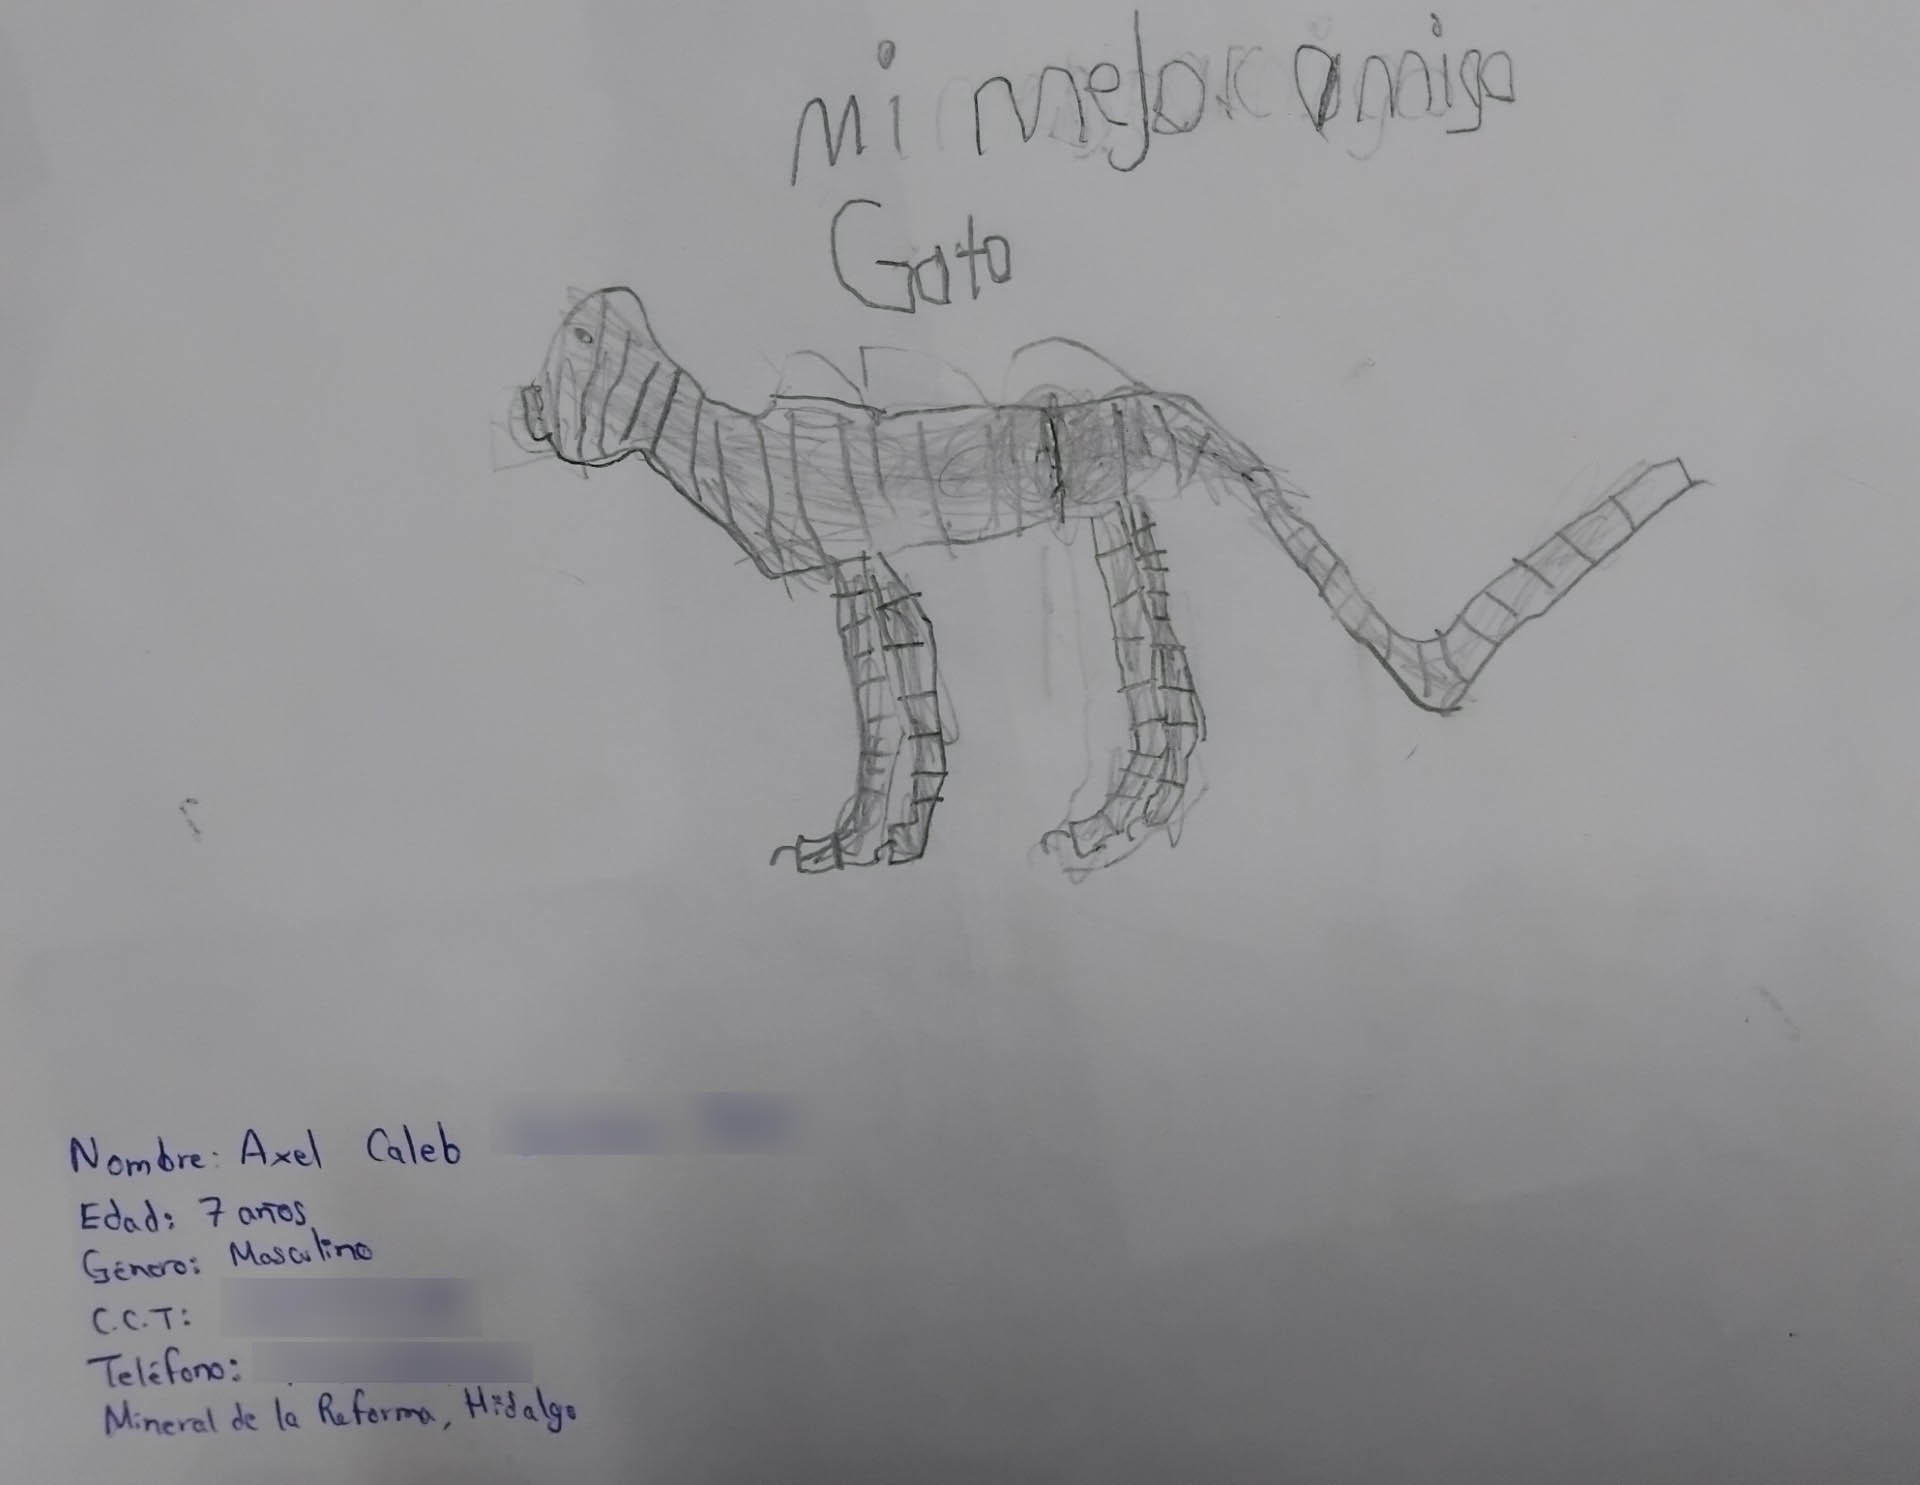 mi mejor amigo
Gato
Nombre: Axel Caleb
Edad: 7 años
Género: Masculino
C.C.T:
Teléfono:
Mineral de la Reforma, Hidalgo